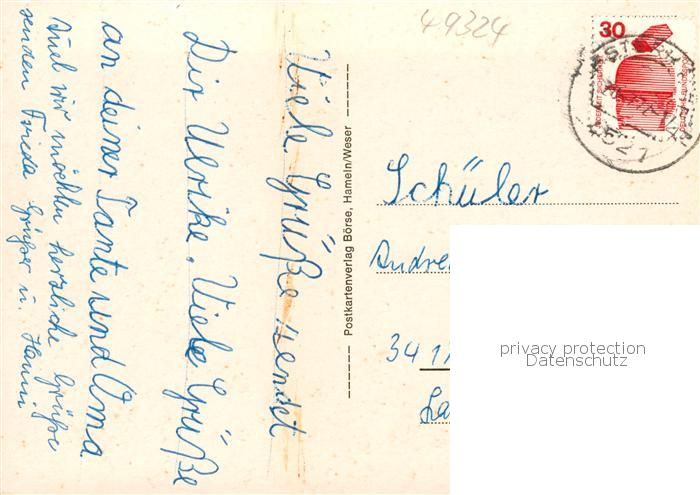 49324
30
UNFALLVERHÜTUNG
DEUTSCHE BUNDESPOST
Viele Grüße sendet
Dir Ulrike. Viele Grüße
an deiner Tante und Oma
Auch wir möchten herzliche Grüße
senden Frieda Grüßer u. Hanni
Postkartenverlag Börse, Hameln/Weser
Schüler
Andre
341
privacy protection
Datenschutz